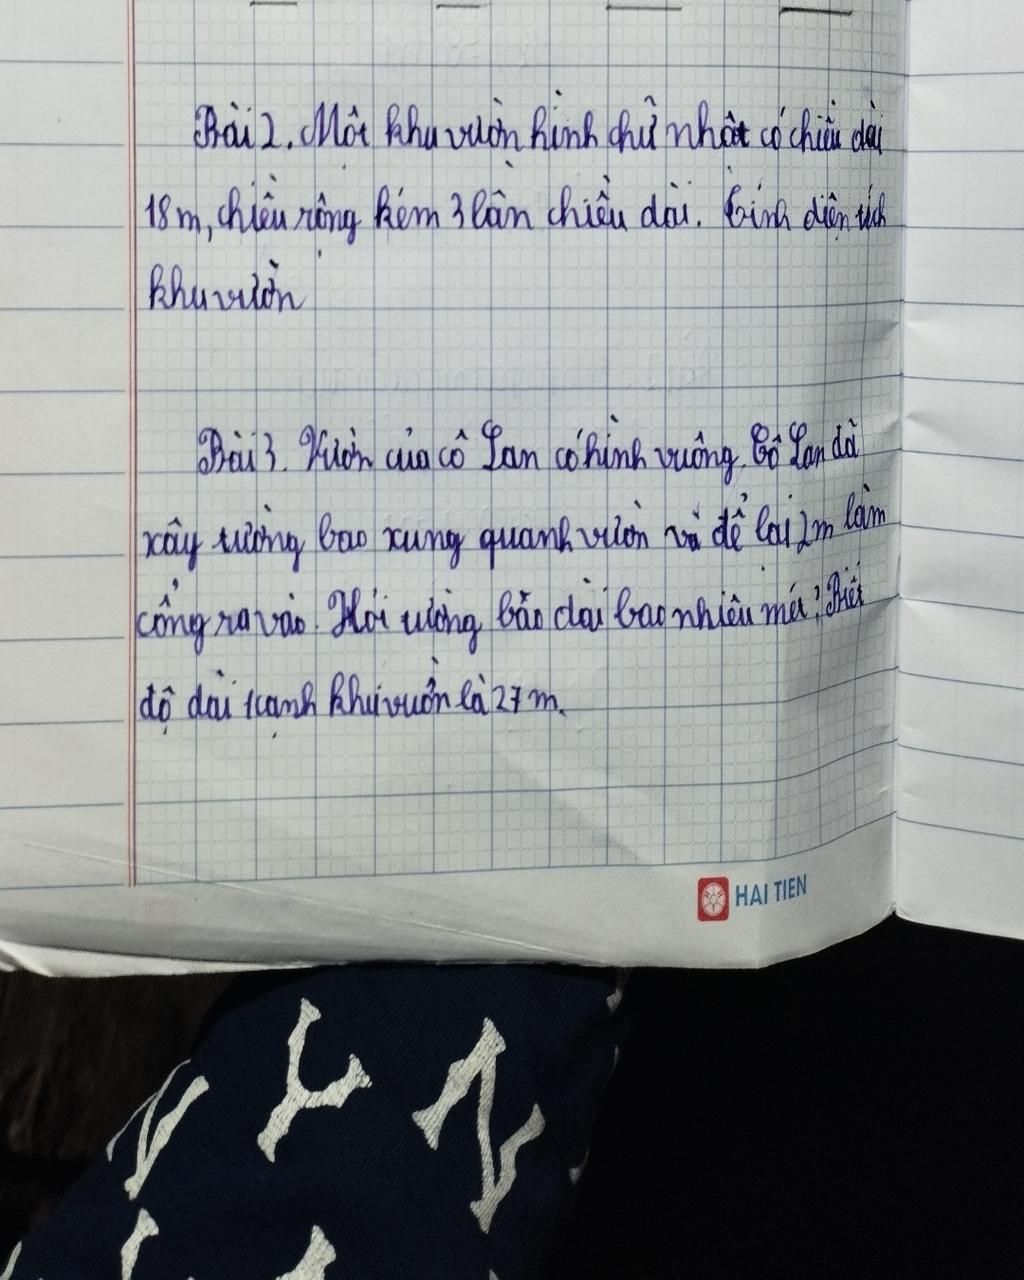 Bài 2. Một khu vườn hình chữ nhật có chiều dài
18m, chiều rộng kém 3 lần chiều dài. Tính diện tích
khu vườn
Bài 3. Vườn của cô Lan có hình vuông. Cô Lan đã
xây tường bao xung quanh vườn và để lại 2m làm
cổng ra vào. Hỏi tường bảo dài bao nhiêu mét? Biết
độ dài cạnh khu vườn là 27m.
HAI TIEN